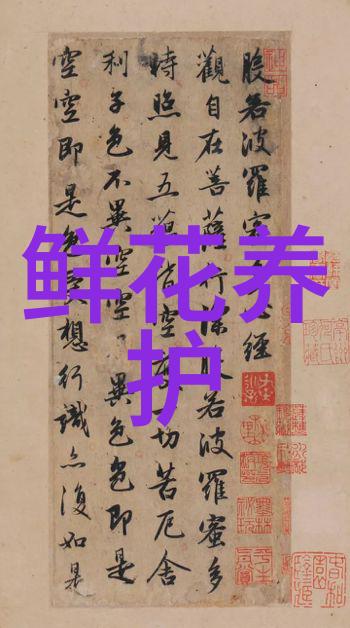 鲜花养
护
般若波羅蜜多心經
觀自在菩薩行深般若波羅蜜多
時照見五蘊皆空度一切苦厄舍
利子色不異空空不異色色即是
空空即是色受想行識亦復如是